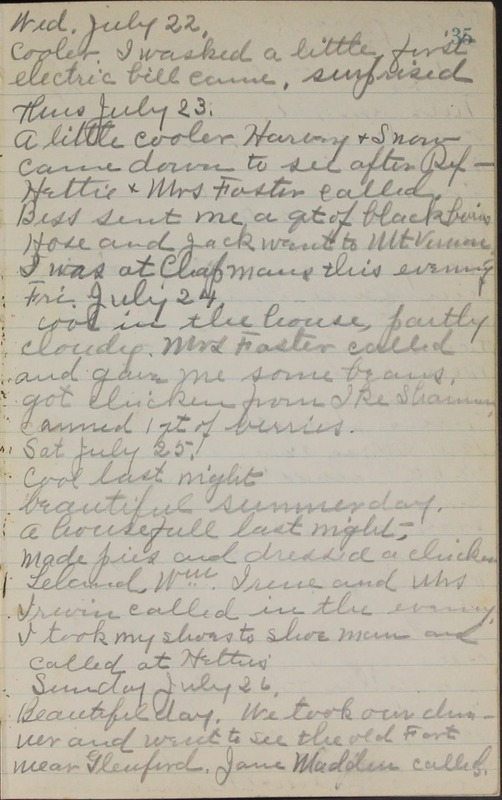 35
Wed. July 22.
Cooler I washed a little, first
electric bill came, surprised
Thus July 23.
A little cooler Harvey & Snow
came down to see after Ref-
Hettie & Mrs Foster called,
Bess sent me a qt of blackberries
Hose and Jack went to Mt Vernon
I was at Chapmans this evening
Fri. July 24.
cool in the house, partly
cloudy. Mrs Foster called
and gave me some beans.
got chicken from Ike
canned 1 qt of berries.
Sat July 25.
Cool last night
beautiful summer day.
a housefull last night,
made pies and dressed a chicken
Leland, Wm. Irene and Mrs
Irwin called in the evening,
I took my shoes to shoe man and
called at Hetties
Sunday July 26.
Beautiful day. We took our din-
ner and went to see the old Fort
near Glenford. Jane Madden called.